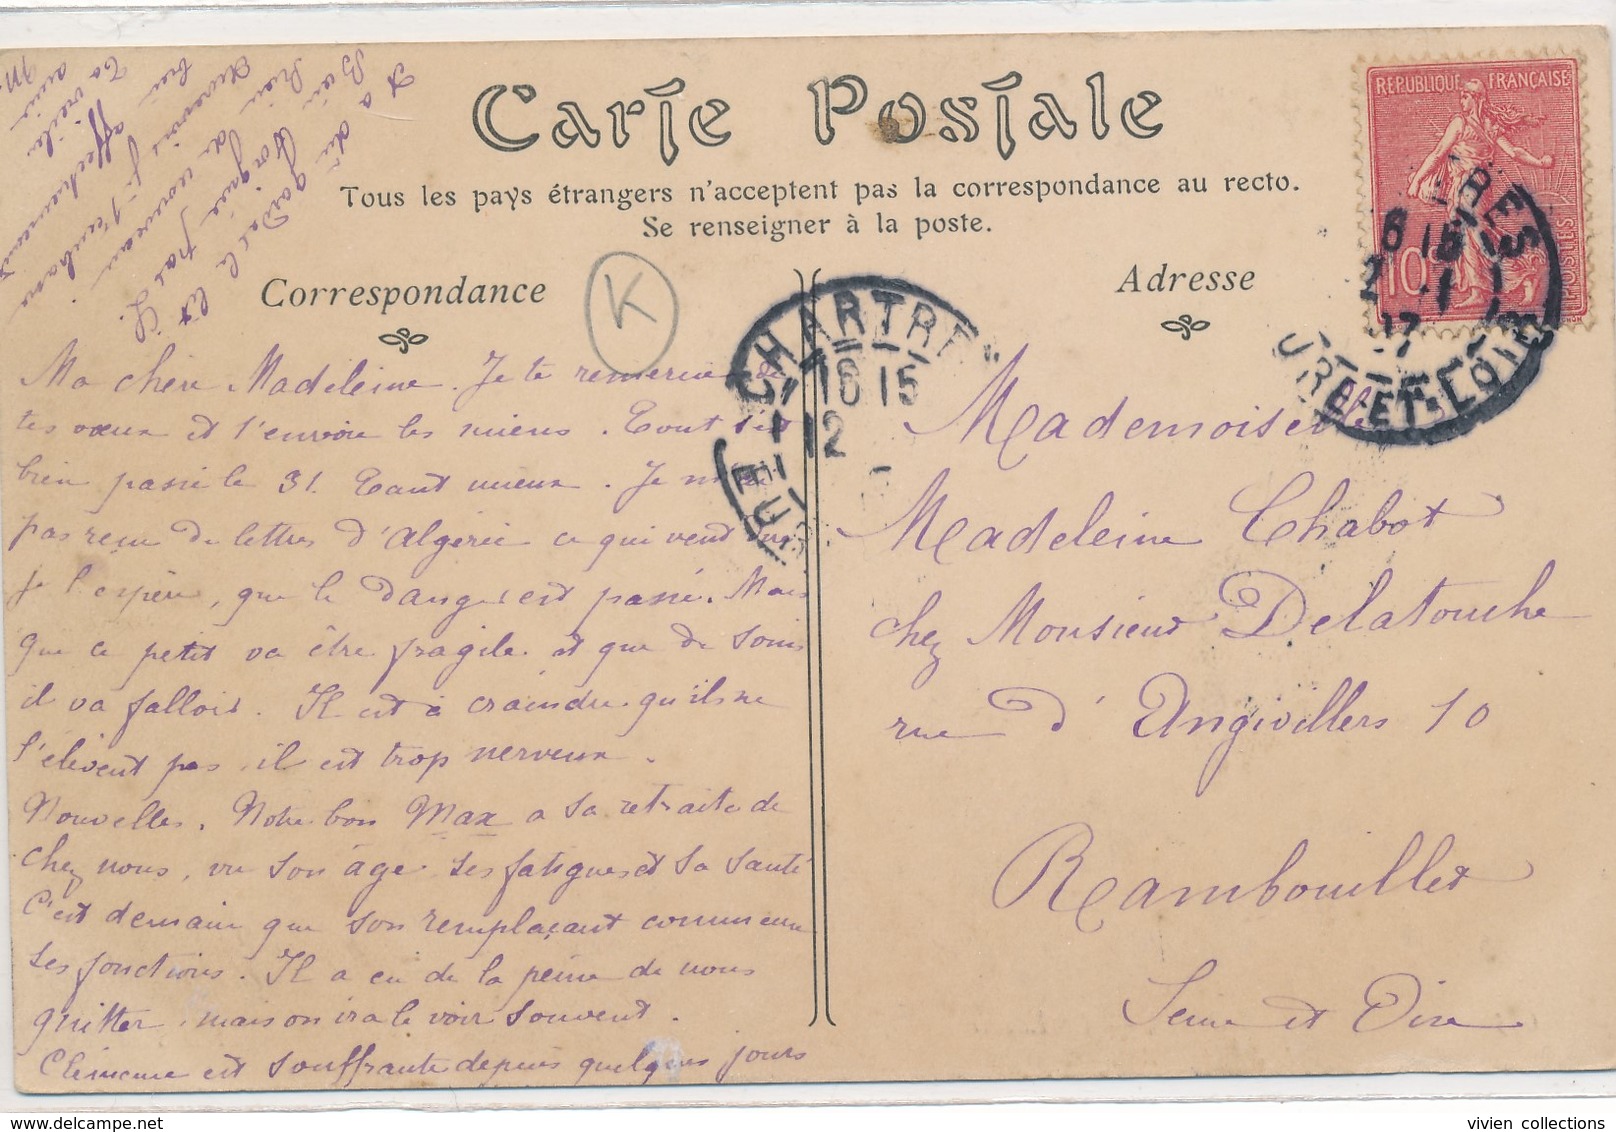 Carte Postale
Tous les pays étrangers n'acceptent pas la correspondance au recto.
Se renseigner à la poste.
Correspondance
Adresse
K
RÉPUBLIQUE FRANÇAISE
10
POSTES
CHARTRES
16 15
12
EURE-ET-LOIR
Ma chère Madeleine. Je te remercie de
tes vœux et t'envoie les miens. Tout s'est
bien passé le 31. Tant mieux. Je n'ai
pas reçu de lettres d'Algérie ce qui veut dire
je l'espère, que le danger est passé. Mais
que ce petit va être fragile et que de soins
il va falloir. Il est à craindre qu'ils ne
l'élèvent pas il est trop nerveux.
Nouvelles. Notre bon Max a sa retraite de
chez nous, vu son âge ses fatigues et sa santé
C'est demain que son remplaçant commence
ses fonctions. Il a eu de la peine de nous
quitter, mais on ira le voir souvent.
Clémence est souffrante depuis quelques jours
et a dû garder le lit
Rien de nouveau
affectueusement
Mademoiselle
Madeleine Chabot
chez Monsieur Delatouche
rue d'Angivillers 10
Rambouillet
Seine et Oise
vivien collections